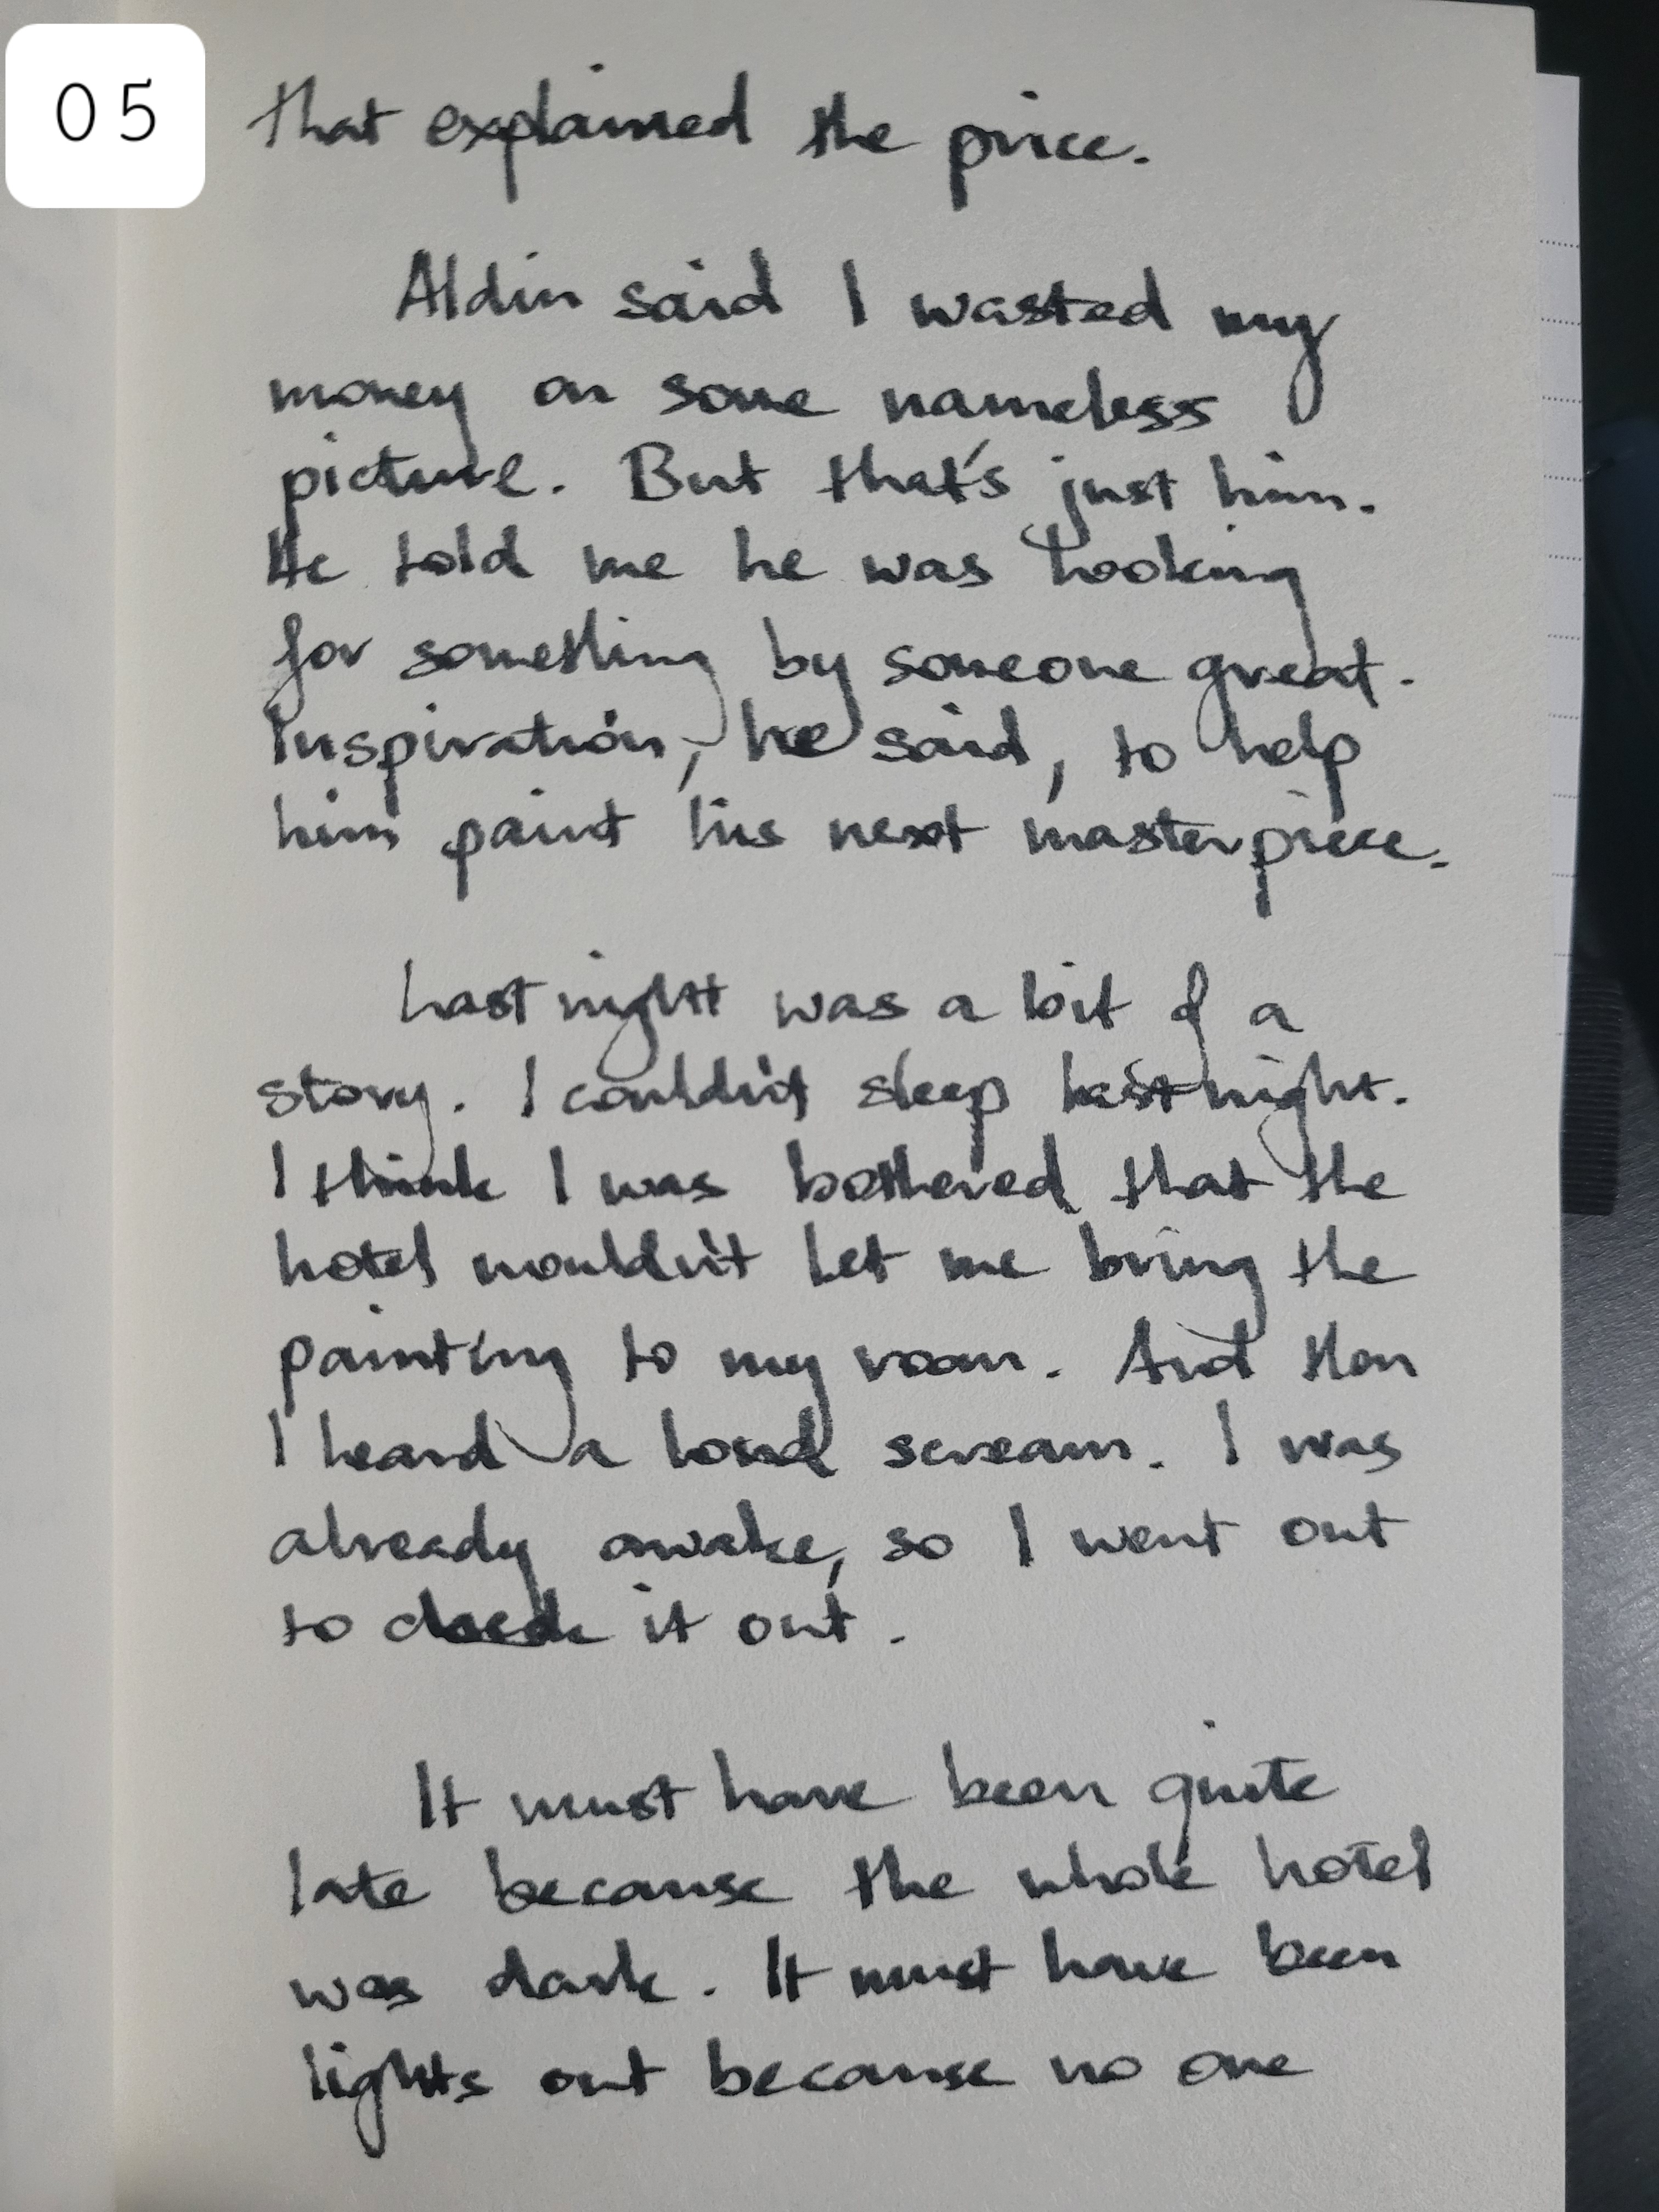 05
that explained the price.
Aldin said I wasted my
money on some nameless
picture. But that's just him.
He told me he was looking
for something by someone great.
Inspiration, he said, to help
him paint his next masterpiece.
Last night was a bit of a
story. I couldn't sleep last night.
I think I was bothered that the
hotel wouldn't let me bring the
painting to my room. And then
I heard a loud scream. I was
already awake, so I went out
to check it out.
It must have been quite
late because the whole hotel
was dark. It must have been
lights out because no one